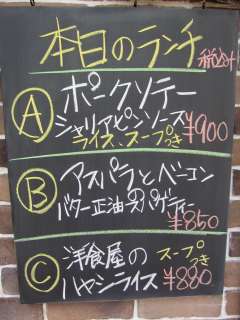 本日のランチ 税込み
Ⓐ ポークソテー
シャリアピンソース
ライス、スープつき ¥900
Ⓑ アスパラとベーコン
バター正油スパゲティー
¥850
Ⓒ 洋食屋の スープつき
ハヤシライス ¥880